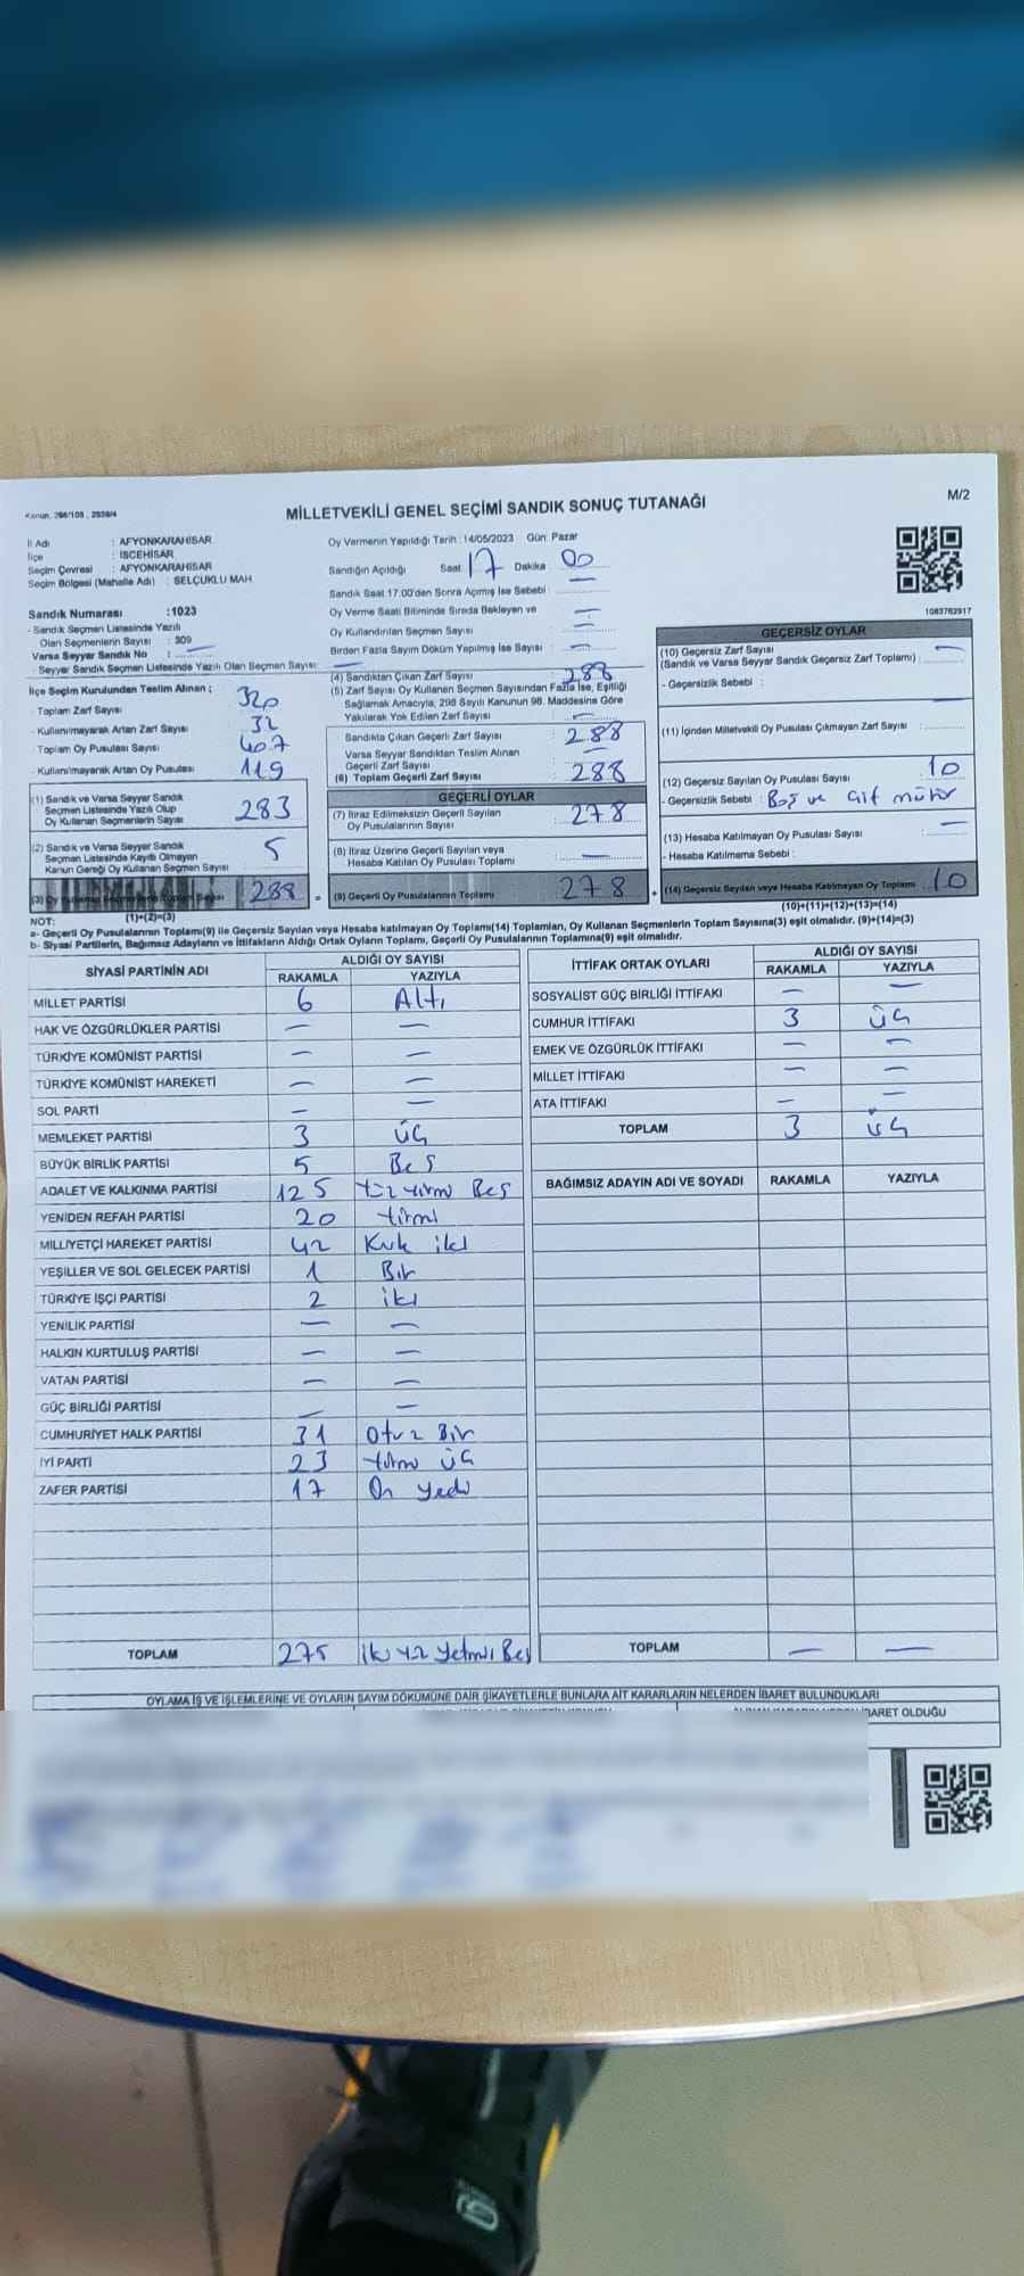 Kanun, 298/105, 2839/4
MİLLETVEKİLİ GENEL SEÇİMİ SANDIK SONUÇ TUTANAĞI
M/2
İl Adı : AFYONKARAHİSAR
İlçe : İSCEHİSAR
Seçim Çevresi : AFYONKARAHİSAR
Seçim Bölgesi (Mahalle Adı) : SELÇUKLU MAH
Sandık Numarası :1023
- Sandık Seçmen Listesinde Yazılı
Olan Seçmenlerin Sayısı : 309
Varsa Seyyar Sandık No : —
- Seyyar Sandık Seçmen Listesinde Yazılı Olan Seçmen Sayısı: —
Oy Vermenin Yapıldığı Tarih :14/05/2023 Gün: Pazar
Sandığın Açıldığı Saat 17 Dakika 00
Sandık Saat 17.00'den Sonra Açılmış İse Sebebi —
Oy Verme Saati Bitiminde Sırada Bekleyen ve —
Oy Kullandırılan Seçmen Sayısı —
Birden Fazla Sayım Döküm Yapılmış İse Sayısı : —
1083762917
İlçe Seçim Kurulundan Teslim Alınan ;
- Toplam Zarf Sayısı 320
- Kullanılmayarak Artan Zarf Sayısı 32
- Toplam Oy Pusulası Sayısı 407
- Kullanılmayarak Artan Oy Pusulası 119
(1) Sandık ve Varsa Seyyar Sandık
Seçmen Listesinde Yazılı Olup
Oy Kullanan Seçmenlerin Sayısı 283
(2) Sandık ve Varsa Seyyar Sandık
Seçmen Listesinde Kayıtlı Olmayan
Kanun Gereği Oy Kullanan Seçmen Sayısı 5
288
(1)+(2)=(3)
(4) Sandıktan Çıkan Zarf Sayısı 288
(5) Zarf Sayısı Oy Kullanan Seçmen Sayısından Fazla İse, Eşitliği
Sağlamak Amacıyla, 298 Sayılı Kanunun 98. Maddesine Göre
Yakılarak Yok Edilen Zarf Sayısı —
Sandıkta Çıkan Geçerli Zarf Sayısı 288
Varsa Seyyar Sandıktan Teslim Alınan
Geçerli Zarf Sayısı —
(6) Toplam Geçerli Zarf Sayısı 288
GEÇERLİ OYLAR
(7) İtiraz Edilmeksizin Geçerli Sayılan
Oy Pusulalarının Sayısı 278
(8) İtiraz Üzerine Geçerli Sayılan veya
Hesaba Katılan Oy Pusulası Toplamı —
(9) Geçerli Oy Pusulalarının Toplamı 278
GEÇERSİZ OYLAR
(10) Geçersiz Zarf Sayısı
(Sandık ve Varsa Seyyar Sandık Geçersiz Zarf Toplamı) : —
- Geçersizlik Sebebi :
(11) İçinden Milletvekili Oy Pusulası Çıkmayan Zarf Sayısı : —
(12) Geçersiz Sayılan Oy Pusulası Sayısı 10
- Geçersizlik Sebebi : Boş ve Çift mühür
(13) Hesaba Katılmayan Oy Pusulası Sayısı : —
- Hesaba Katılmama Sebebi :
(14) Geçersiz Sayılan veya Hesaba Katılmayan Oy Toplamı 10
(10)+(11)+(12)+(13)=(14)
NOT:
a- Geçerli Oy Pusulalarının Toplamı(9) ile Geçersiz Sayılan veya Hesaba katılmayan Oy Toplamı(14) Toplamları, Oy Kullanan Seçmenlerin Toplam Sayısına(3) eşit olmalıdır. (9)+(14)=(3)
b- Siyasi Partilerin, Bağımsız Adayların ve İttifakların Aldığı Ortak Oyların Toplamı, Geçerli Oy Pusulalarının Toplamına(9) eşit olmalıdır.
SİYASİ PARTİNİN ADI ALDIĞI OY SAYISI
RAKAMLA YAZIYLA
MİLLET PARTİSİ 6 Altı
HAK VE ÖZGÜRLÜKLER PARTİSİ — —
TÜRKİYE KOMÜNİST PARTİSİ — —
TÜRKİYE KOMÜNİST HAREKETİ — —
SOL PARTİ — —
MEMLEKET PARTİSİ 3 Üç
BÜYÜK BİRLİK PARTİSİ 5 Beş
ADALET VE KALKINMA PARTİSİ 125 Yüz yirmi Beş
YENİDEN REFAH PARTİSİ 20 Yirmi
MİLLİYETÇİ HAREKET PARTİSİ 42 Kırk iki
YEŞİLLER VE SOL GELECEK PARTİSİ 1 Bir
TÜRKİYE İŞÇİ PARTİSİ 2 iki
YENİLİK PARTİSİ — —
HALKIN KURTULUŞ PARTİSİ — —
VATAN PARTİSİ — —
GÜÇ BİRLİĞİ PARTİSİ — —
CUMHURİYET HALK PARTİSİ 31 Otuz Bir
İYİ PARTİ 23 Yirmi üç
ZAFER PARTİSİ 17 On yedi
TOPLAM 275 İki yüz Yetmiş Beş
İTTİFAK ORTAK OYLARI ALDIĞI OY SAYISI
RAKAMLA YAZIYLA
SOSYALİST GÜÇ BİRLİĞİ İTTİFAKI — —
CUMHUR İTTİFAKI 3 üç
EMEK VE ÖZGÜRLÜK İTTİFAKI — —
MİLLET İTTİFAKI — —
ATA İTTİFAKI — —
TOPLAM 3 üç
BAĞIMSIZ ADAYIN ADI VE SOYADI RAKAMLA YAZIYLA
TOPLAM — —
OYLAMA İŞ VE İŞLEMLERİNE VE OYLARIN SAYIM DÖKÜMÜNE DAİR ŞİKAYETLERLE BUNLARA AİT KARARLARIN NELERDEN İBARET BULUNDUKLARI
OLDUĞU